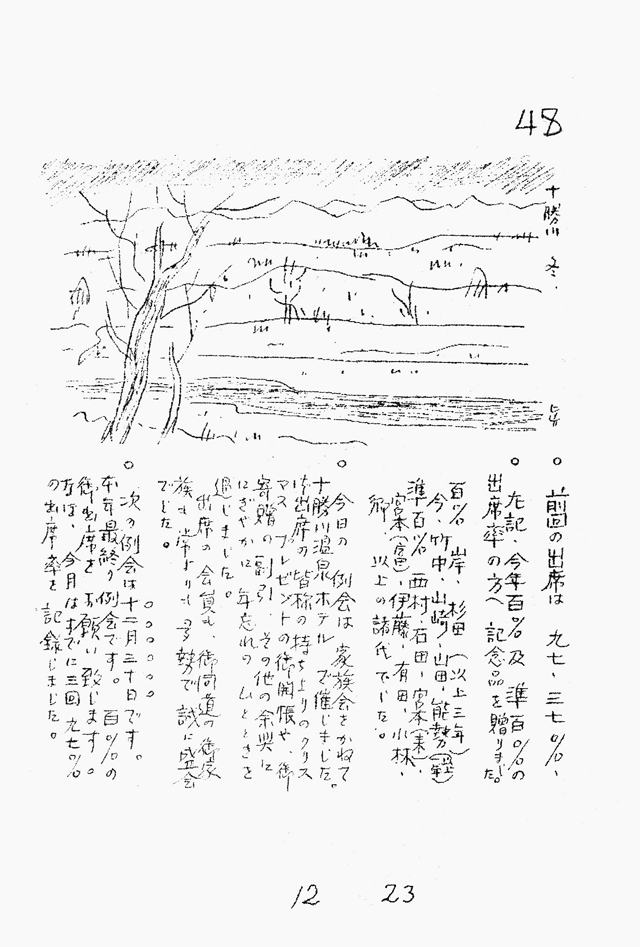 48
十勝川 冬.
○ 前回の出席は 九七.三七%、
○ 左記、今年百%及 準百%の
出席率の方へ 記念品を贈りました。
百% 岸、杉田(以上三年)
今、竹中、山崎、山田、能勢
準百% 西村、石田、宮本
宮本、伊藤、有田、小林、
以上の諸氏でした。
○ 今日の 例会は 家族会をかねて
十勝川温泉ホテル で催しました。
御出席の皆様の持ちよりのクリス
マス プレゼントの御開帳や、御
寄贈の 割引、その他の余興に
にぎやかに 年忘れの ひとときを
過しました。
出席の会員も、御同道の御家
族も 多勢で 誠に盛会
でした。
○ 次の例会は十二月三十日です。
本年最終の例会です。百%の
御出席を お願い致します。
なほ、今月はすでに三回 九七%
の出席率を 記録しました。
12 23